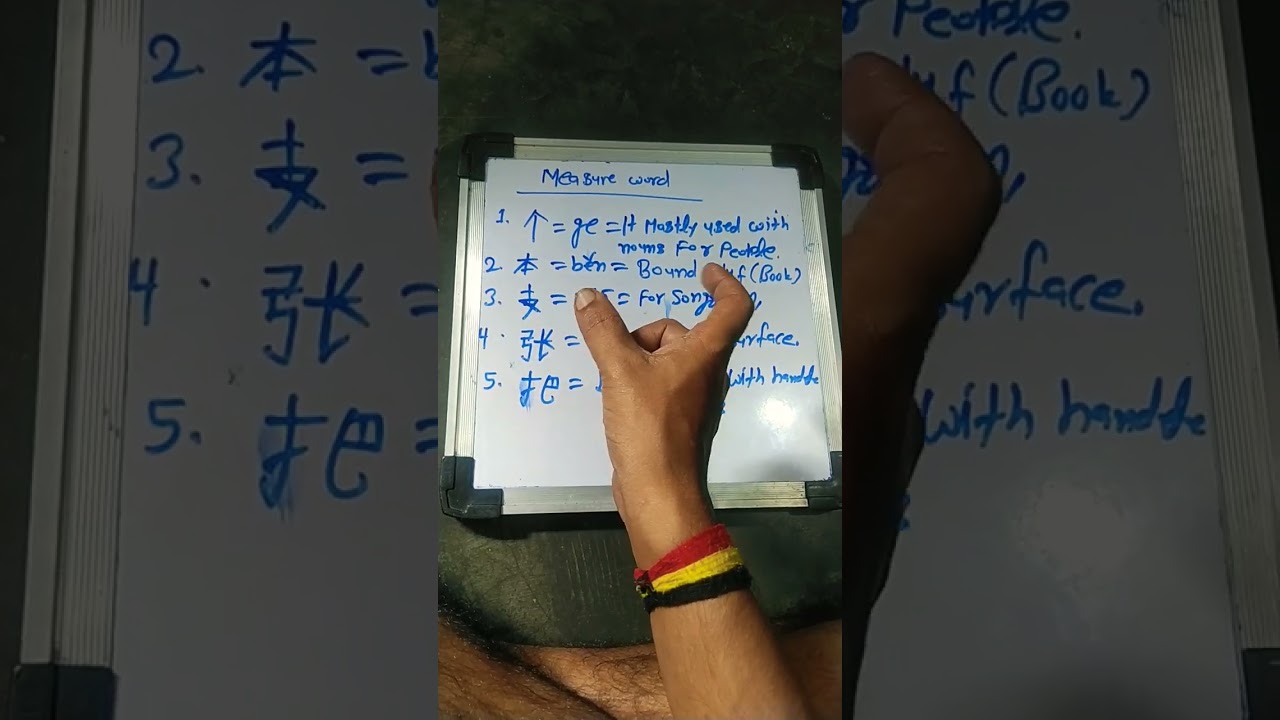 Measure word
1. 个 = ge = It Mostly used with
nouns For People.
2. 本 = běn = Bound (Book)
3. 支 = = For Song
4. 张 = surface.
5. 把 = with handle